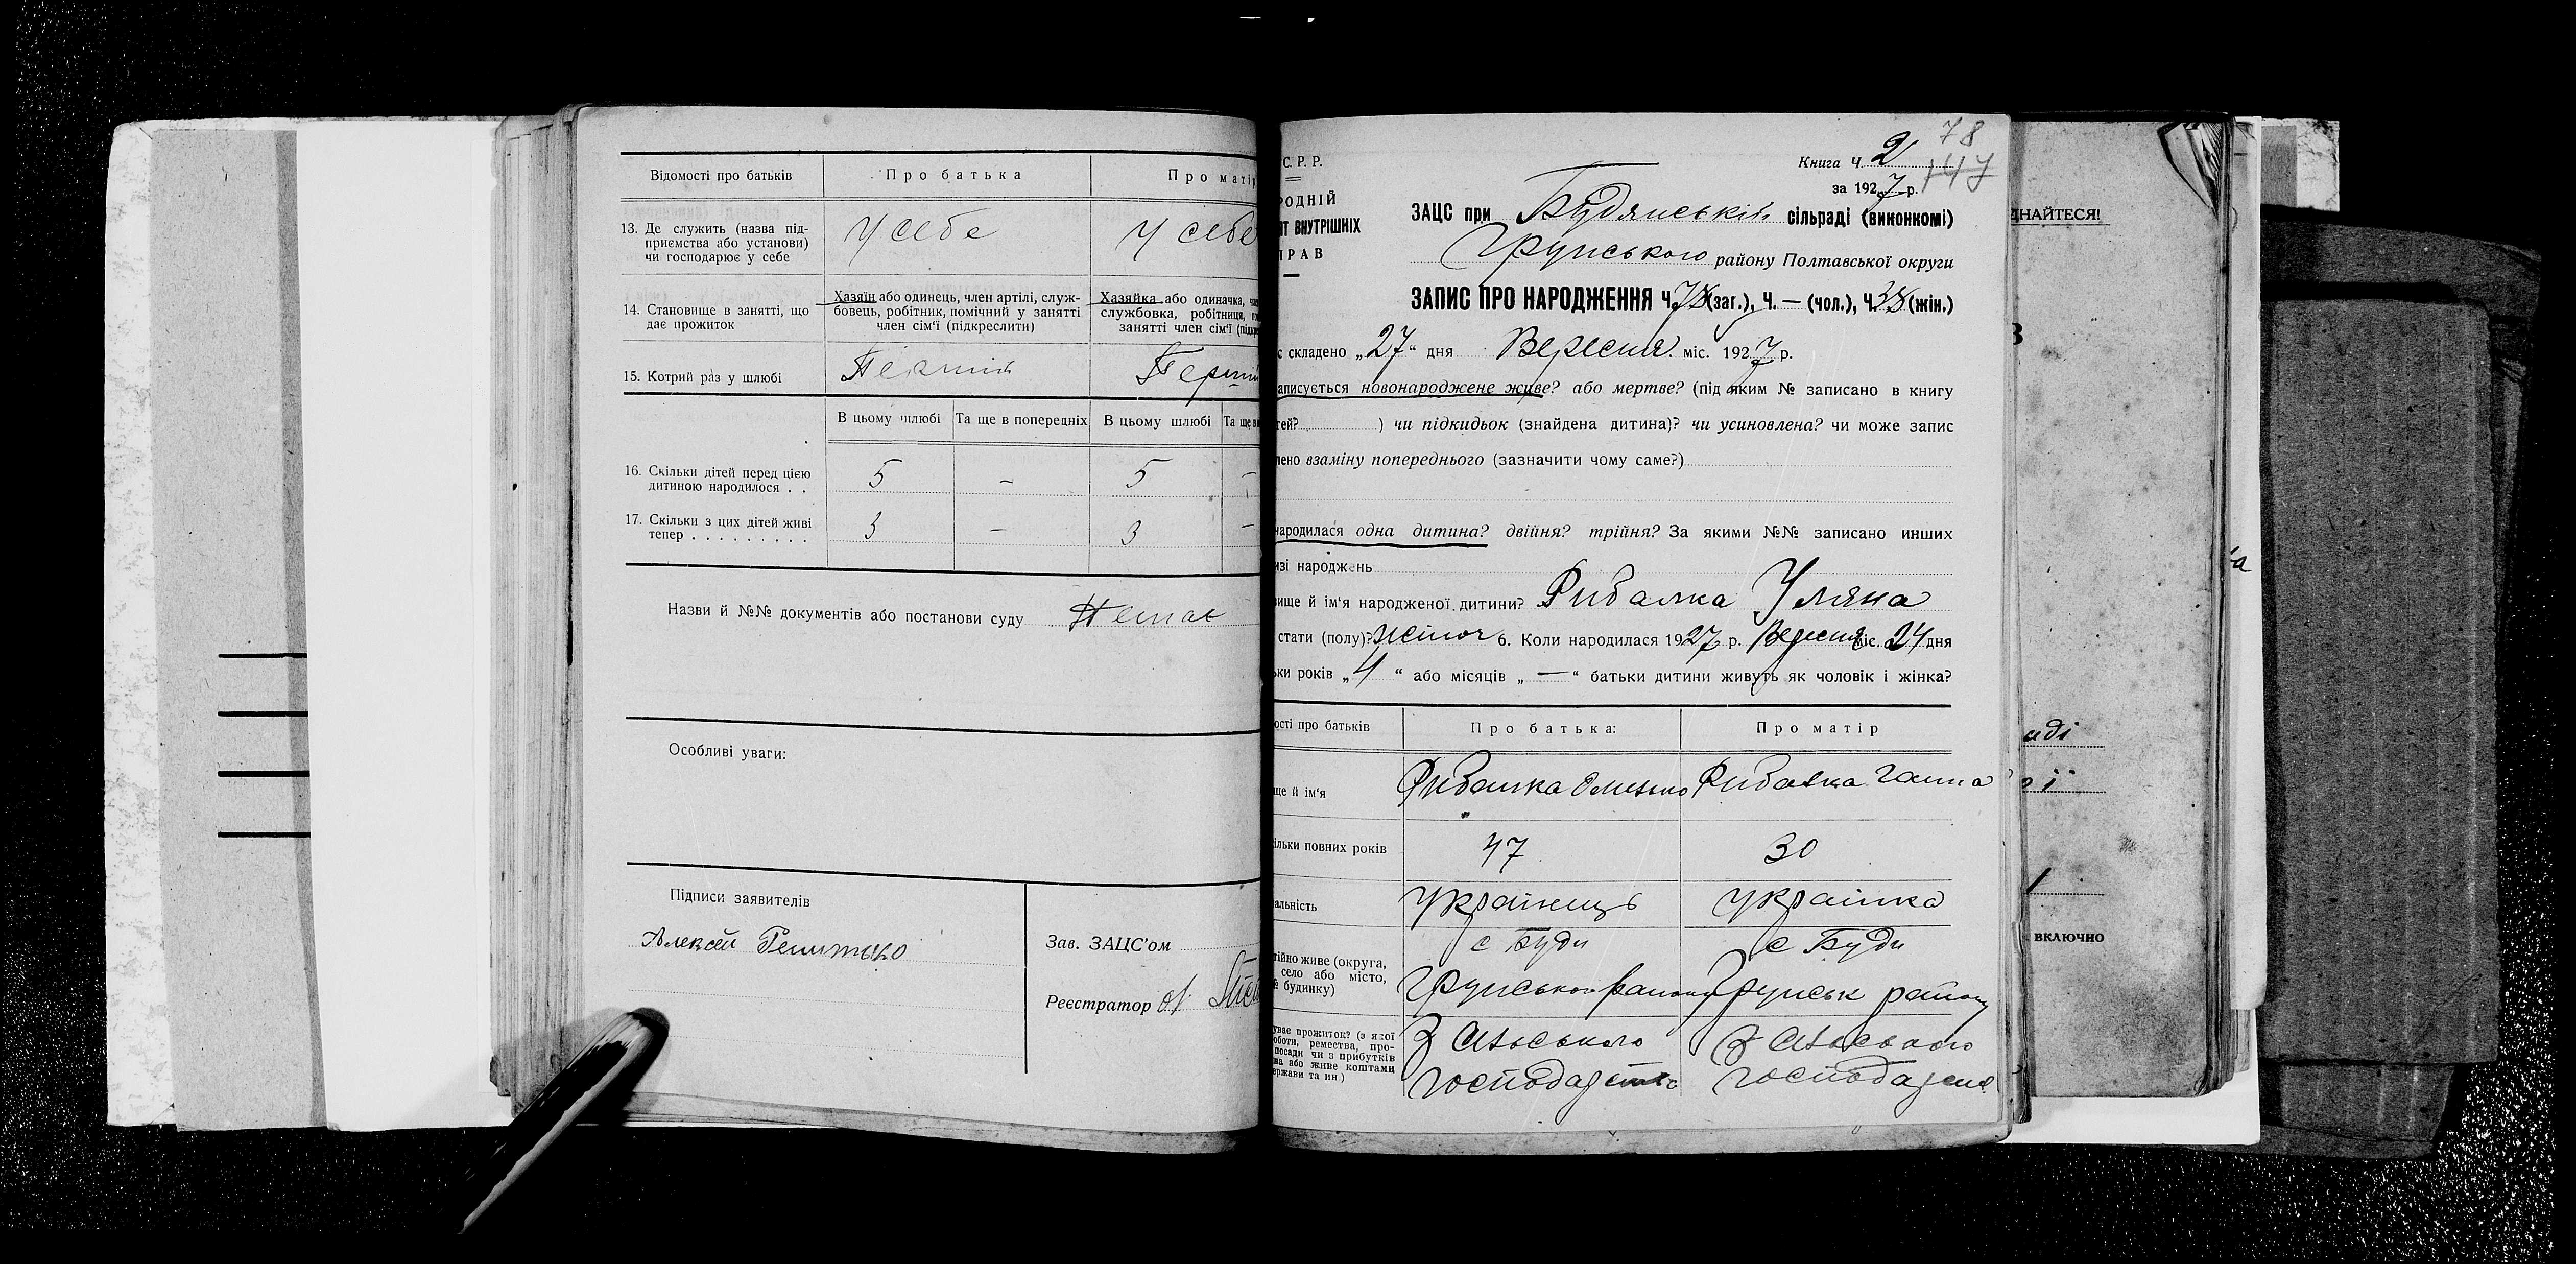 Відомості про батьків
Про батька
Про матір
13. Де служить (назва під-
приємства або установи)
чи господарює у себе
У себе
У себе
14. Становище в занятті, що
дає прожиток
Хазяїн або одинець, член артілі, служ-
бовець, робітник, помічний у занятті
член сім'ї (підкреслити)
Хазяйка або одиначка,
службовка, робітниця,
занятті член сім'ї
15. Котрий раз у шлюбі
Перший
В цьому шлюбі
Та ще в попередніх
В цьому шлюбі
Та ще в
16. Скільки дітей перед цією
дитиною народилося . .
5 – 5 –
17. Скільки з цих дітей живі
тепер . . . . . . . . .
3 – 3 –
Назви й №№ документів або постанови суду Немає
Особливі уваги:
Підписи заявителів
Алексей
Зав. ЗАЦС'ом
Реєстратор
С. Р. Р.
РОДНІЙ
ІТ ВНУТРІШНІХ
ПРАВ
78
147
Книга Ч. 2
за 1927 р.
ЗАЦС при Будянській сільраді (виконкомі)
Грунського району Полтавської округи
ЗАПИС ПРО НАРОДЖЕННЯ Ч. 78 (заг.), Ч. — (чол.), Ч. 38 (жін.)
с складено „27“ дня Вересня міс. 1927 р.
аписується новонароджене живе? або мертве? (під яким № записано в книгу
тей? ) чи підкидьок (знайдена дитина)? чи усиновлена? чи може запис
лено взаміну попереднього (зазначити чому саме?)
народилася одна дитина? двійня? трійня? За якими №№ записано инших
изі народжень
вище й ім'я народженої дитини? Рибалка Уляна
стати (полу)? жіноч 6. Коли народилася 1927 р. Вересня міс. 24 дня
ьки років „4“ або місяців „—“ батьки дитини живуть як чоловік і жінка?
ості про батьків
Про батька:
Про матір
ще й ім'я
Рибалка
Рибалка Ганна
ільки повних років
47
30
альність
Українець
Українка
тійно живе (округа,
село або місто,
№ будинку)
с Буди
Грунського району
с Буди
Грунськ району
уває прожиток? (з якої
оботи, ремества, про-
посади чи з прибутків
на або живе коштами
ержави та ин.)
З сільського
господарства
З сільського
ДНАЙТЕСЯ!
В
аді
ї
ВКЛЮЧНО